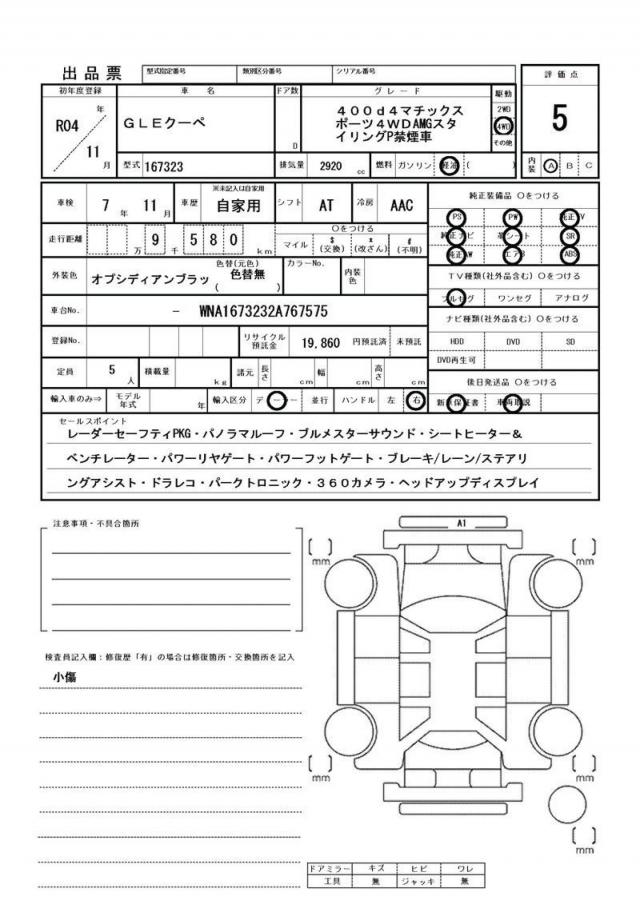 出品票 型式指定番号 類別区分番号 シリアル番号
評価点
初年度登録 車名 ドア数 グレード 駆動
R04 年 11 月
GLEクーペ
D
400d4マチックス
ポーツ4WDAMGスタ
イリングP禁煙車
2WD
4WD
その他
5
型式 167323 排気量 2920 cc 燃料 ガソリン 軽油 ( )
内装 A B C
車検 7 年 11 月 車歴 ※未記入は自家用 自家用 シフト AT 冷房 AAC
純正装備品 〇をつける
PS PW 純正TV
純正ナビ 革シート SR
純正AW エアB ABS
走行距離 万 9 千 580 km
〇をつける
マイル $(交換) x(改ざん) #(不明)
外装色 オブシディアンブラッ 色替(元色) ( 色替無 ) カラーNo. 内装色
TV種類(社外品含む) 〇をつける
フルセグ ワンセグ アナログ
車台No. － WNA1673232A767575
ナビ種類(社外品含む) 〇をつける
HDD DVD SD
DVD再生可
登録No. リサイクル預託金 19,860 円預託済 未預託
定員 5 人 積載量 kg 諸元 長さ cm 幅 cm 高さ cm
後日発送品 〇をつける
新車保証書 車両取説
輸入車のみ⇒ モデル年式 年 輸入区分 ディーラー 並行 ハンドル 左 右
セールスポイント
レーダーセーフティPKG・パノラマルーフ・ブルメスターサウンド・シートヒーター&
ベンチレーター・パワーリヤゲート・パワーフットゲート・ブレーキ/レーン/ステアリ
ングアシスト・ドラレコ・パークトロニック・360カメラ・ヘッドアップディスプレイ
注意事項・不具合箇所
A1
[ ] mm
[ ] mm
検査員記入欄：修復歴「有」の場合は修復箇所・交換箇所を記入
小傷
[ ] mm
[ ] mm
[ ] mm
ドアミラー キズ ヒビ ワレ
工具 無 ジャッキ 無